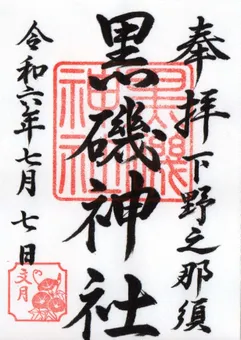 奉拝 下野之那須
黒磯神社
黒磯神社
令和六年七月七日
文月